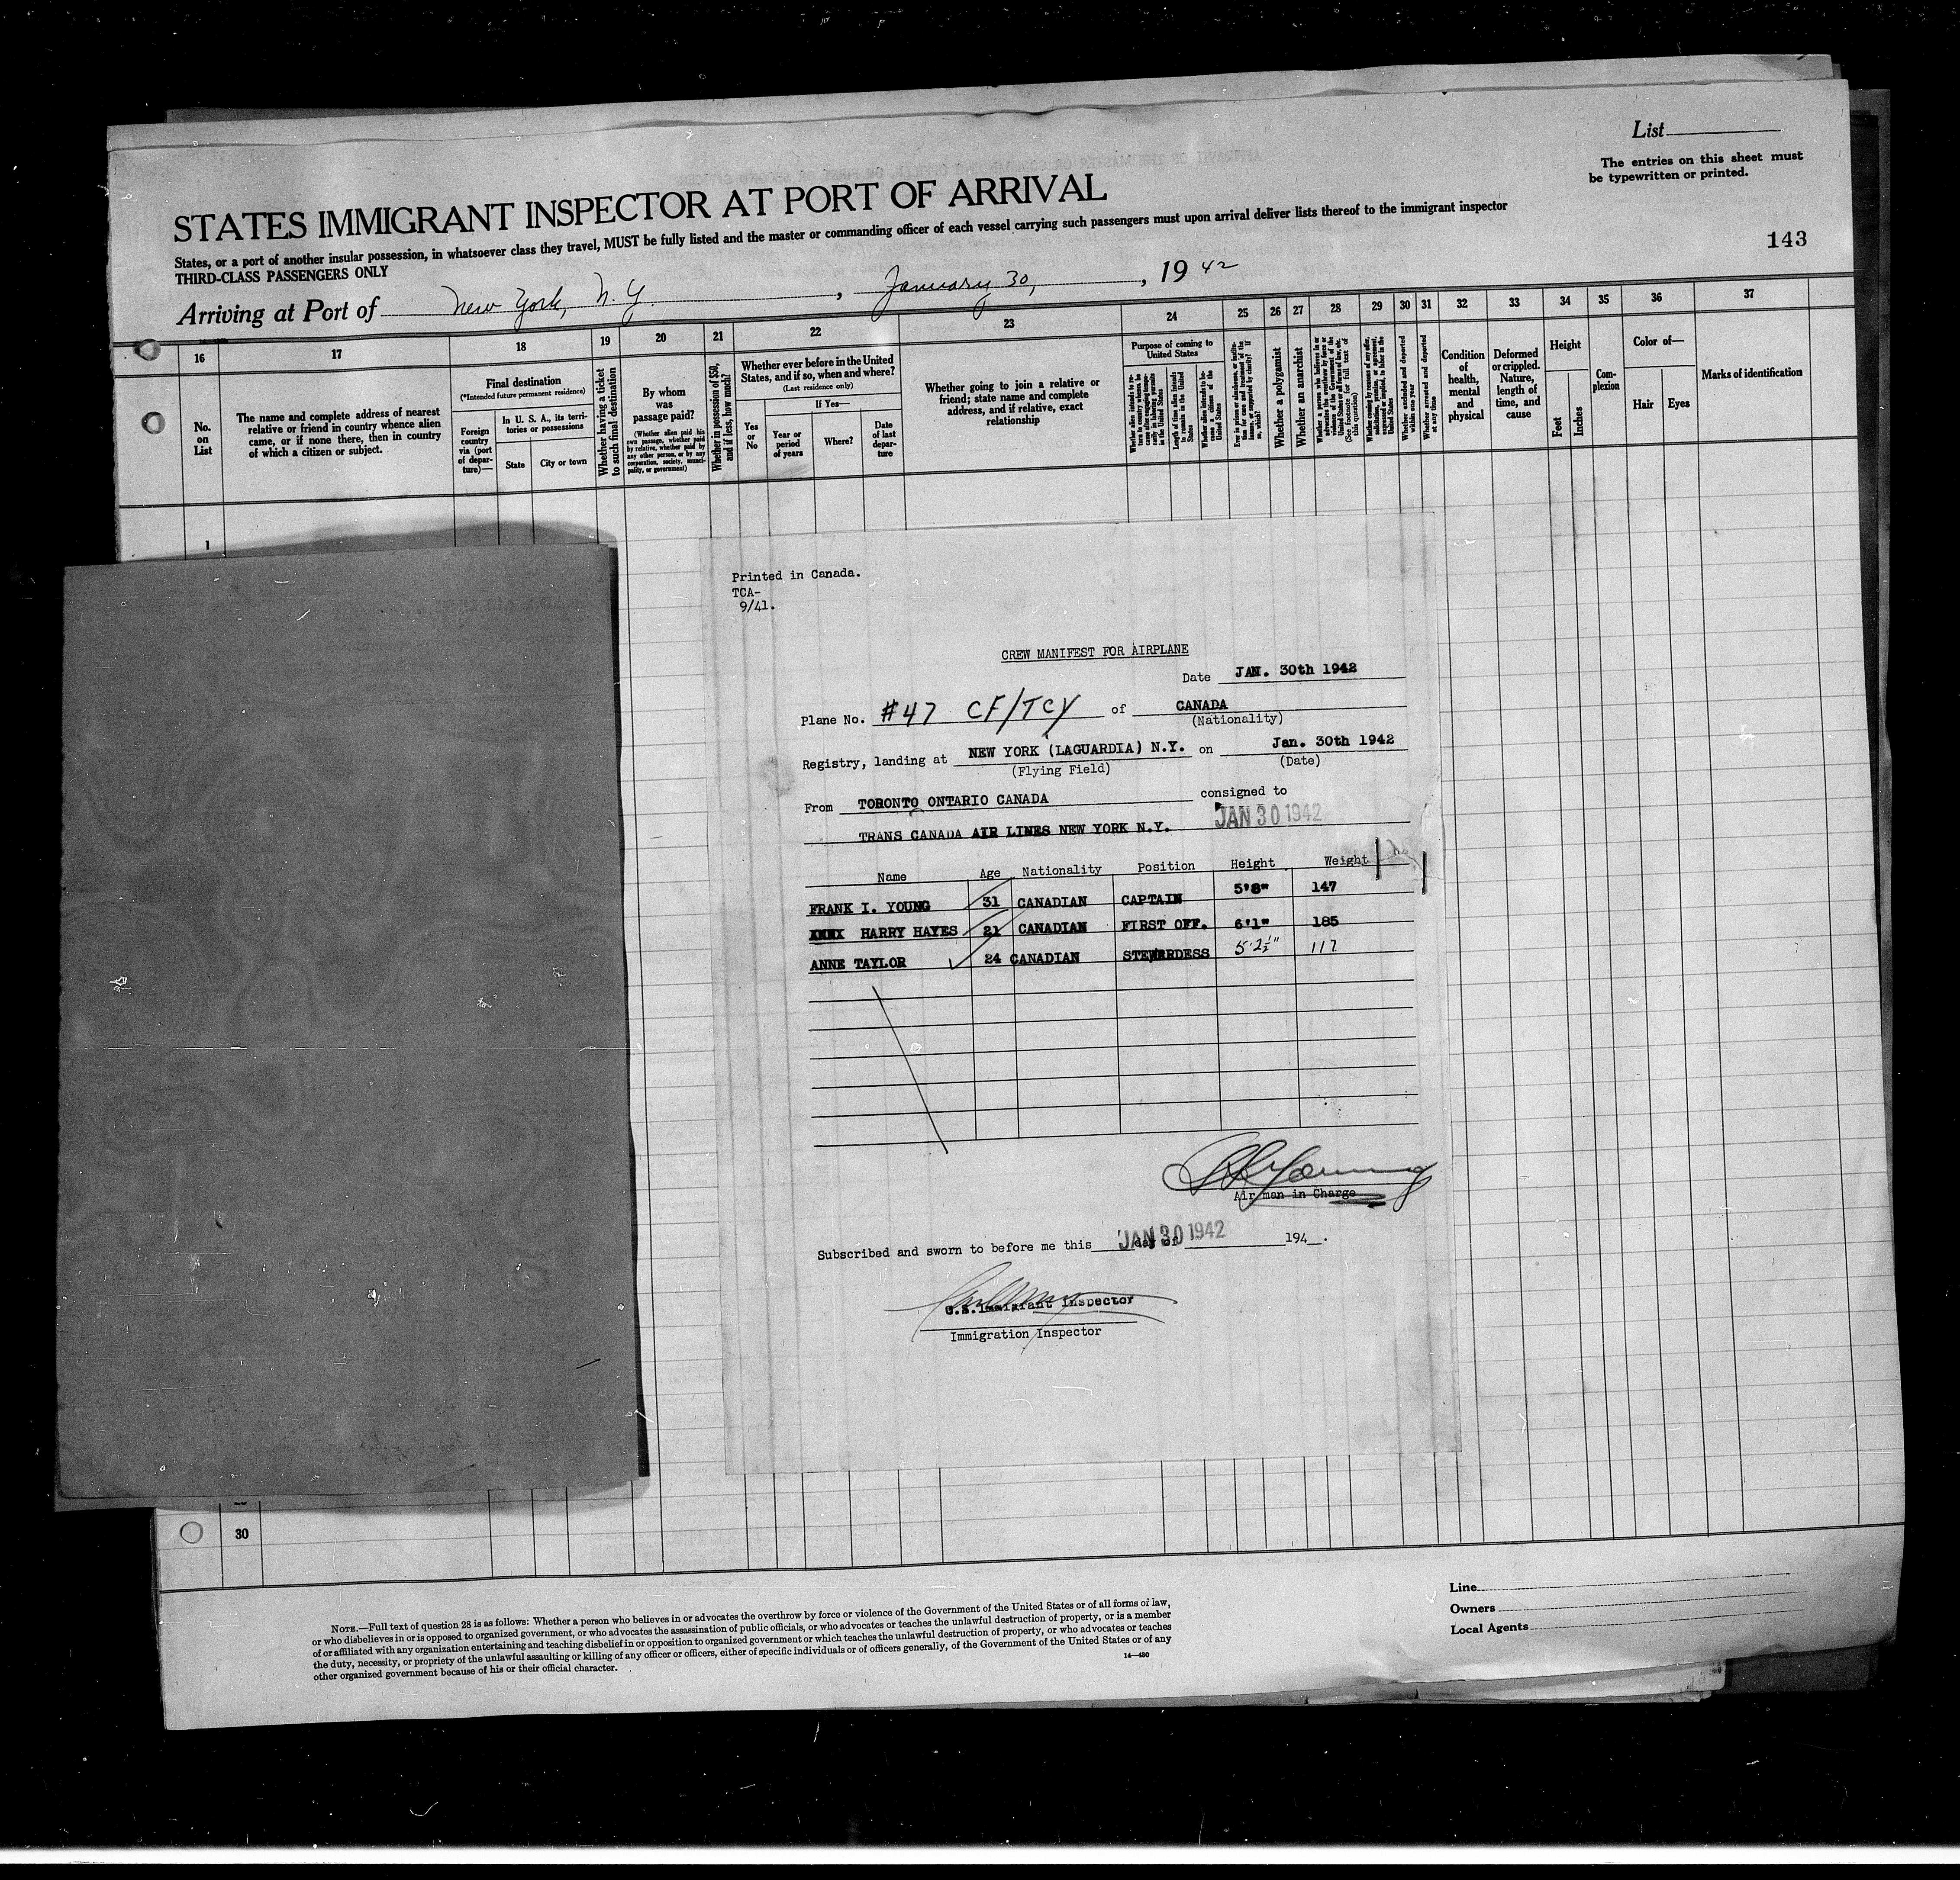 List
The entries on this sheet must
be typewritten or printed.
STATES IMMIGRANT INSPECTOR AT PORT OF ARRIVAL
States, or a port of another insular possession, in whatsoever class they travel, MUST be fully listed and the master or commanding officer of each vessel carrying such passengers must upon arrival deliver lists thereof to the immigrant inspector
THIRD-CLASS PASSENGERS ONLY
143
Arriving at Port of New York, N.Y. , January 30, , 19 42
16 17 18 19 20 21 22 23 24 25 26 27 28 29 30 31 32 33 34 35 36 37
No.
on
List
The name and complete address of nearest
relative or friend in country whence alien
came, or if none there, then in country
of which a citizen or subject.
Final destination
(*Intended future permanent residence)
Foreign
country
via (port
of depar-
ture)—
In U. S. A., its terri-
tories or possessions
State
City or town
Whether having a ticket
to such final destination
By whom
was
passage paid?
(Whether alien paid his
own passage, whether paid
by relative, whether paid by
any other person, or by any
corporation, society, munici-
pality, or government)
Whether in possession of $50,
and if less, how much?
Whether ever before in the United
States, and if so, when and where?
(Last residence only)
Yes
or
No
If Yes—
Year or
period
of years
Where?
Date
of last
depar-
ture
Whether going to join a relative or
friend; state name and complete
address, and if relative, exact
relationship
Purpose of coming to
United States
Whether a polygamist
Whether an anarchist
Whether arrested and deported
within one year
Whether arrested and deported
at any time
Condition
of
health,
mental
and
physical
Deformed
or crippled.
Nature,
length of
time, and
cause
Height
Feet
Inches
Com-
plexion
Color of—
Hair
Eyes
Marks of identification
1
Printed in Canada.
TCA-
9/41.
CREW MANIFEST FOR AIRPLANE
Date JAN. 30th 1942
Plane No. #47 CF/TCY of CANADA
(Nationality)
Registry, landing at NEW YORK (LAGUARDIA) N.Y. on Jan. 30th 1942
(Flying Field) (Date)
From TORONTO ONTARIO CANADA consigned to
TRANS CANADA AIR LINES NEW YORK N.Y. JAN 30 1942
Name Age Nationality Position Height Weight
FRANK I. YOUNG 31 CANADIAN CAPTAIN 5'8" 147
HARRY HAYES 21 CANADIAN FIRST OFF. 6'1" 185
ANNE TAYLOR 24 CANADIAN STEWERDESS 5'2½" 117
Air man in Charge
Subscribed and sworn to before me this JAN 30 1942 day of 194 .
U.S. Immigrant Inspector
Immigration Inspector
30
Line
Owners
Local Agents
NOTE.—Full text of question 28 is as follows: Whether a person who believes in or advocates the overthrow by force or violence of the Government of the United States or of all forms of law,
or who disbelieves in or is opposed to organized government, or who advocates the assassination of public officials, or who advocates or teaches the unlawful destruction of property, or is a member
of or affiliated with any organization entertaining and teaching disbelief in or opposition to organized government or which teaches the unlawful destruction of property, or who advocates or teaches
the duty, necessity, or propriety of the unlawful assaulting or killing of any officer or officers, either of specific individuals or of officers generally, of the Government of the United States or of any
other organized government because of his or their official character.
14—430